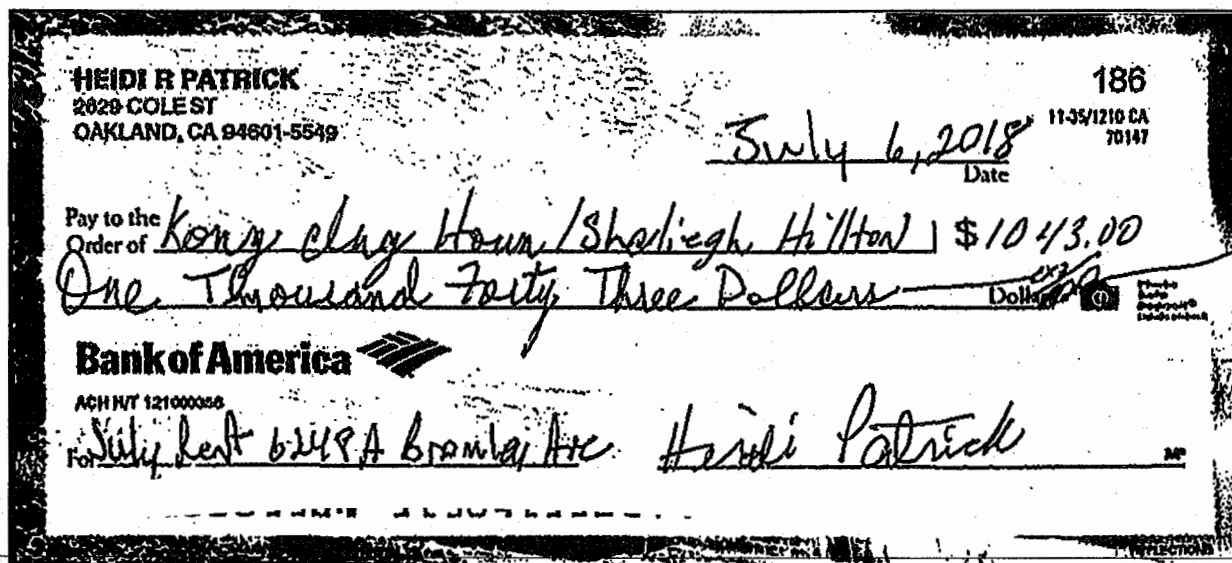 HEIDI R PATRICK
2629 COLE ST
OAKLAND, CA 94601-5549
186
11-35/1210 CA
70147
July 6, 2018
Date
Pay to the
Order of Kong Houn / Shaliegh Hillton $ 1043.00
One Thousand Forty Three Dollars Dollars
Bank of America
ACH R/T 121000358
For July Rent 6248 A Bromley Ave Heidi Patrick MP
REFLECTIONS